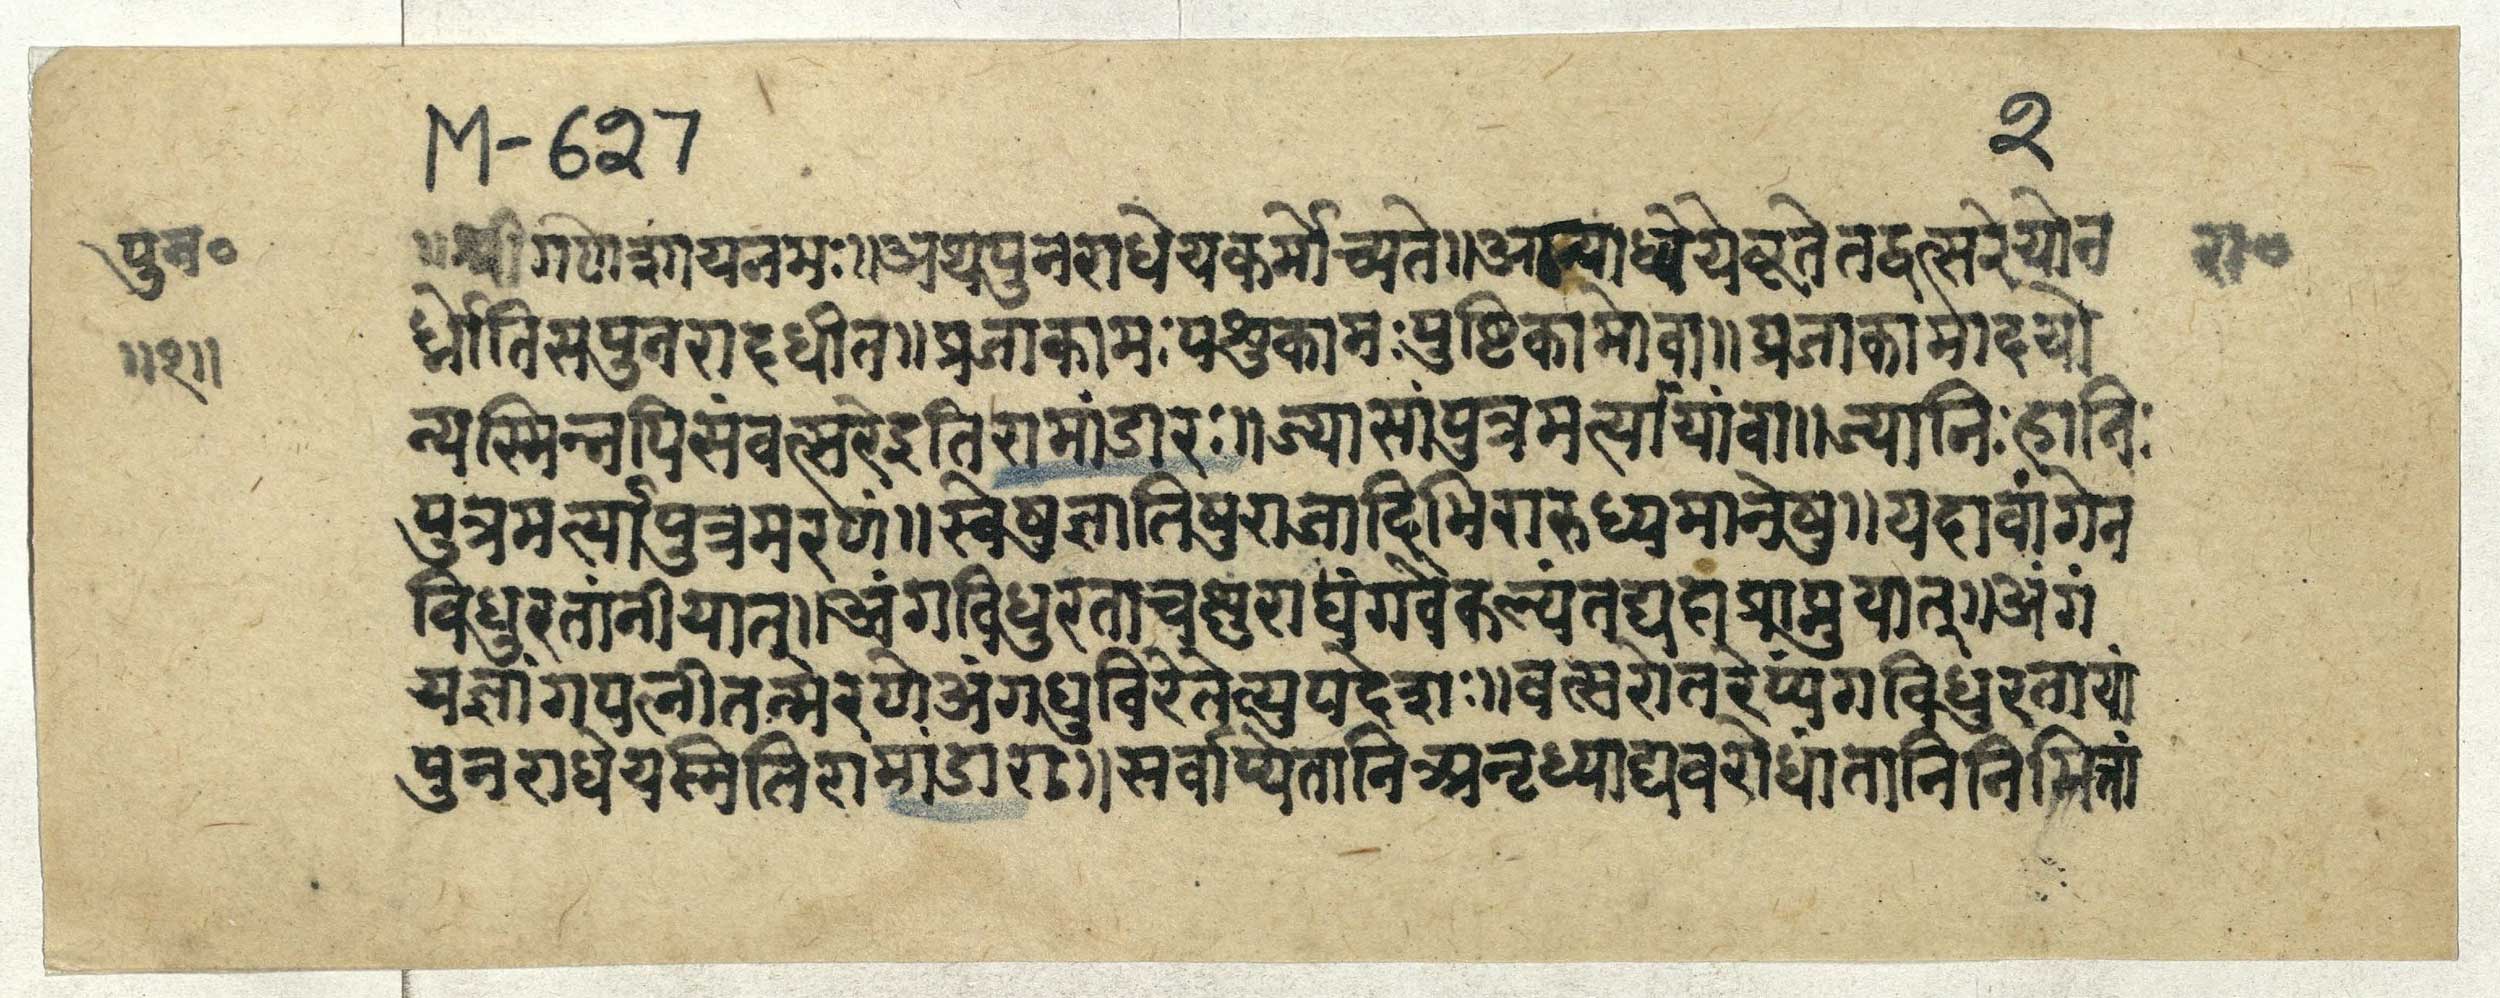 M-627
२
पुन॰
॥१॥
रा॰
॥श्रीगणेशायनमः॥अथपुनराधेयकर्मोच्यते॥अग्न्याध्येयेकृतेतद्वत्सरेयोन
र्ध्नोतिसपुनरादधीत॥प्रजाकामःपशुकामःपुष्टिकामोवा॥प्रजाकामादयो
न्यस्मिन्नपिसंवत्सरेइतिरामांडारः॥ज्यासांपुत्रमर्त्यायांवा॥ज्यानिःहानिः
पुत्रमर्त्यापुत्रमरणं॥स्वेषुज्ञातिषुराजादिभिरारुध्यमानेषु॥यदावांगेन
विधुरतांनीयात्॥अंगविधुरताचक्षुराद्यंगवैकल्यंतद्यदाप्राप्नुयात्॥अंगं
यज्ञांगपत्नीतन्मरणेअंगधुविरेतेत्युपदेशः॥वत्सरोतरेप्यंगविधुरतायां
पुनराधेयस्मितिरामांडाराः॥सर्वाण्येतानिअनृध्याद्यवरोधांतानिनिमित्तां